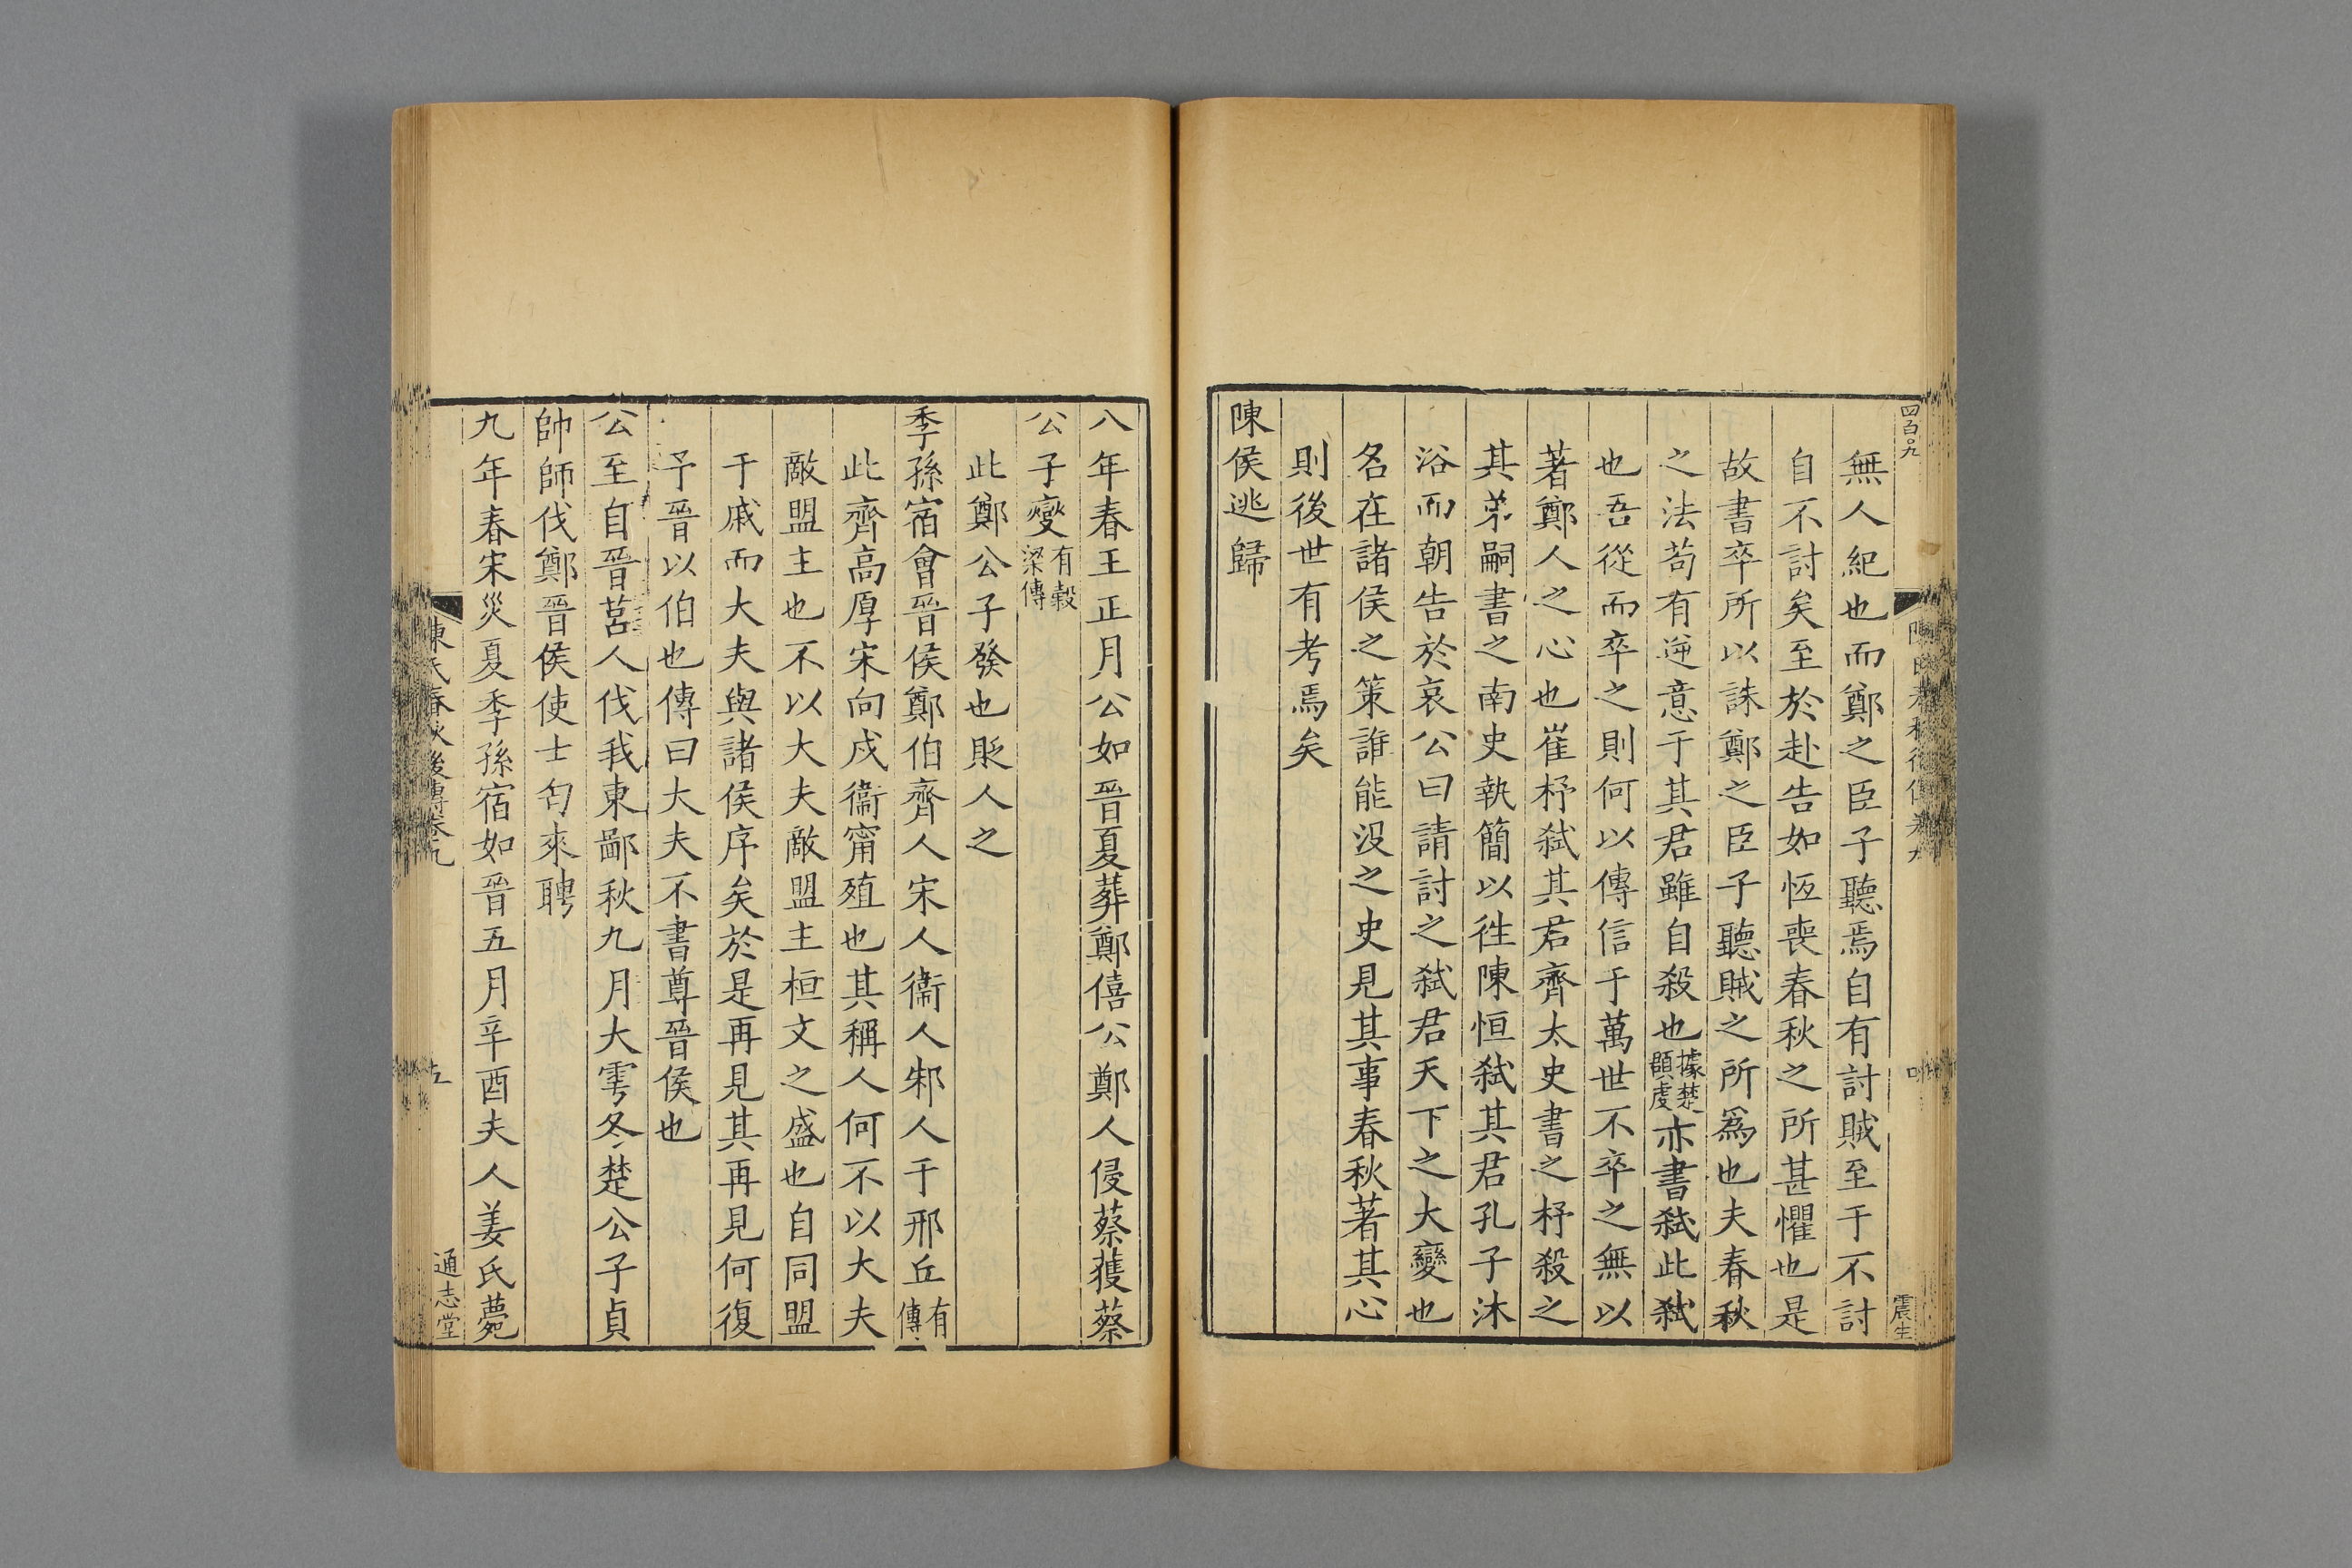 四百〇九
震生
無人紀也而鄭之臣子聽焉自有討賊至于不討
自不討矣至於赴告如恆喪春秋之所甚懼也是
故書卒所以誅鄭之臣子聽賊之所爲也夫春秋
之法苟有逆意于其君雖自殺也據楚頵虔亦書弑此弑
也吾從而卒之則何以傳信于萬世不卒之無以
著鄭人之心也崔杼弑其君齊太史書之杼殺之
其弟嗣書之南史執簡以徃陳恒弑其君孔子沐
浴而朝告於哀公曰請討之弑君天下之大變也
名在諸侯之策誰能没之史見其事春秋著其心
則後世有考焉矣
陳侯逃歸
八年春王正月公如晉夏葬鄭僖公鄭人侵蔡獲蔡
公子燮有穀梁傳
此鄭公子發也貶人之
季孫宿會晉侯鄭伯齊人宋人衞人邾人于邢丘有傳
此齊高厚宋向戌衞甯殖也其稱人何不以大夫
敵盟主也不以大夫敵盟主桓文之盛也自同盟
于戚而大夫與諸侯序矣於是再見其再見何復
予晉以伯也傳曰大夫不書尊晉侯也
公至自晉莒人伐我東鄙秋九月大雩冬楚公子貞
帥師伐鄭晉侯使士匄來聘
九年春宋災夏季孫宿如晉五月辛酉夫人姜氏薨
陳氏春秋後傳卷九
五
通志堂